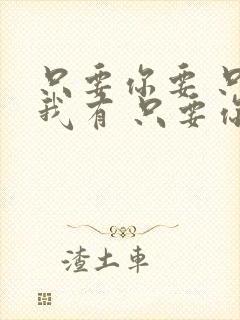 只要你要 只
我有 只要你
渣土車